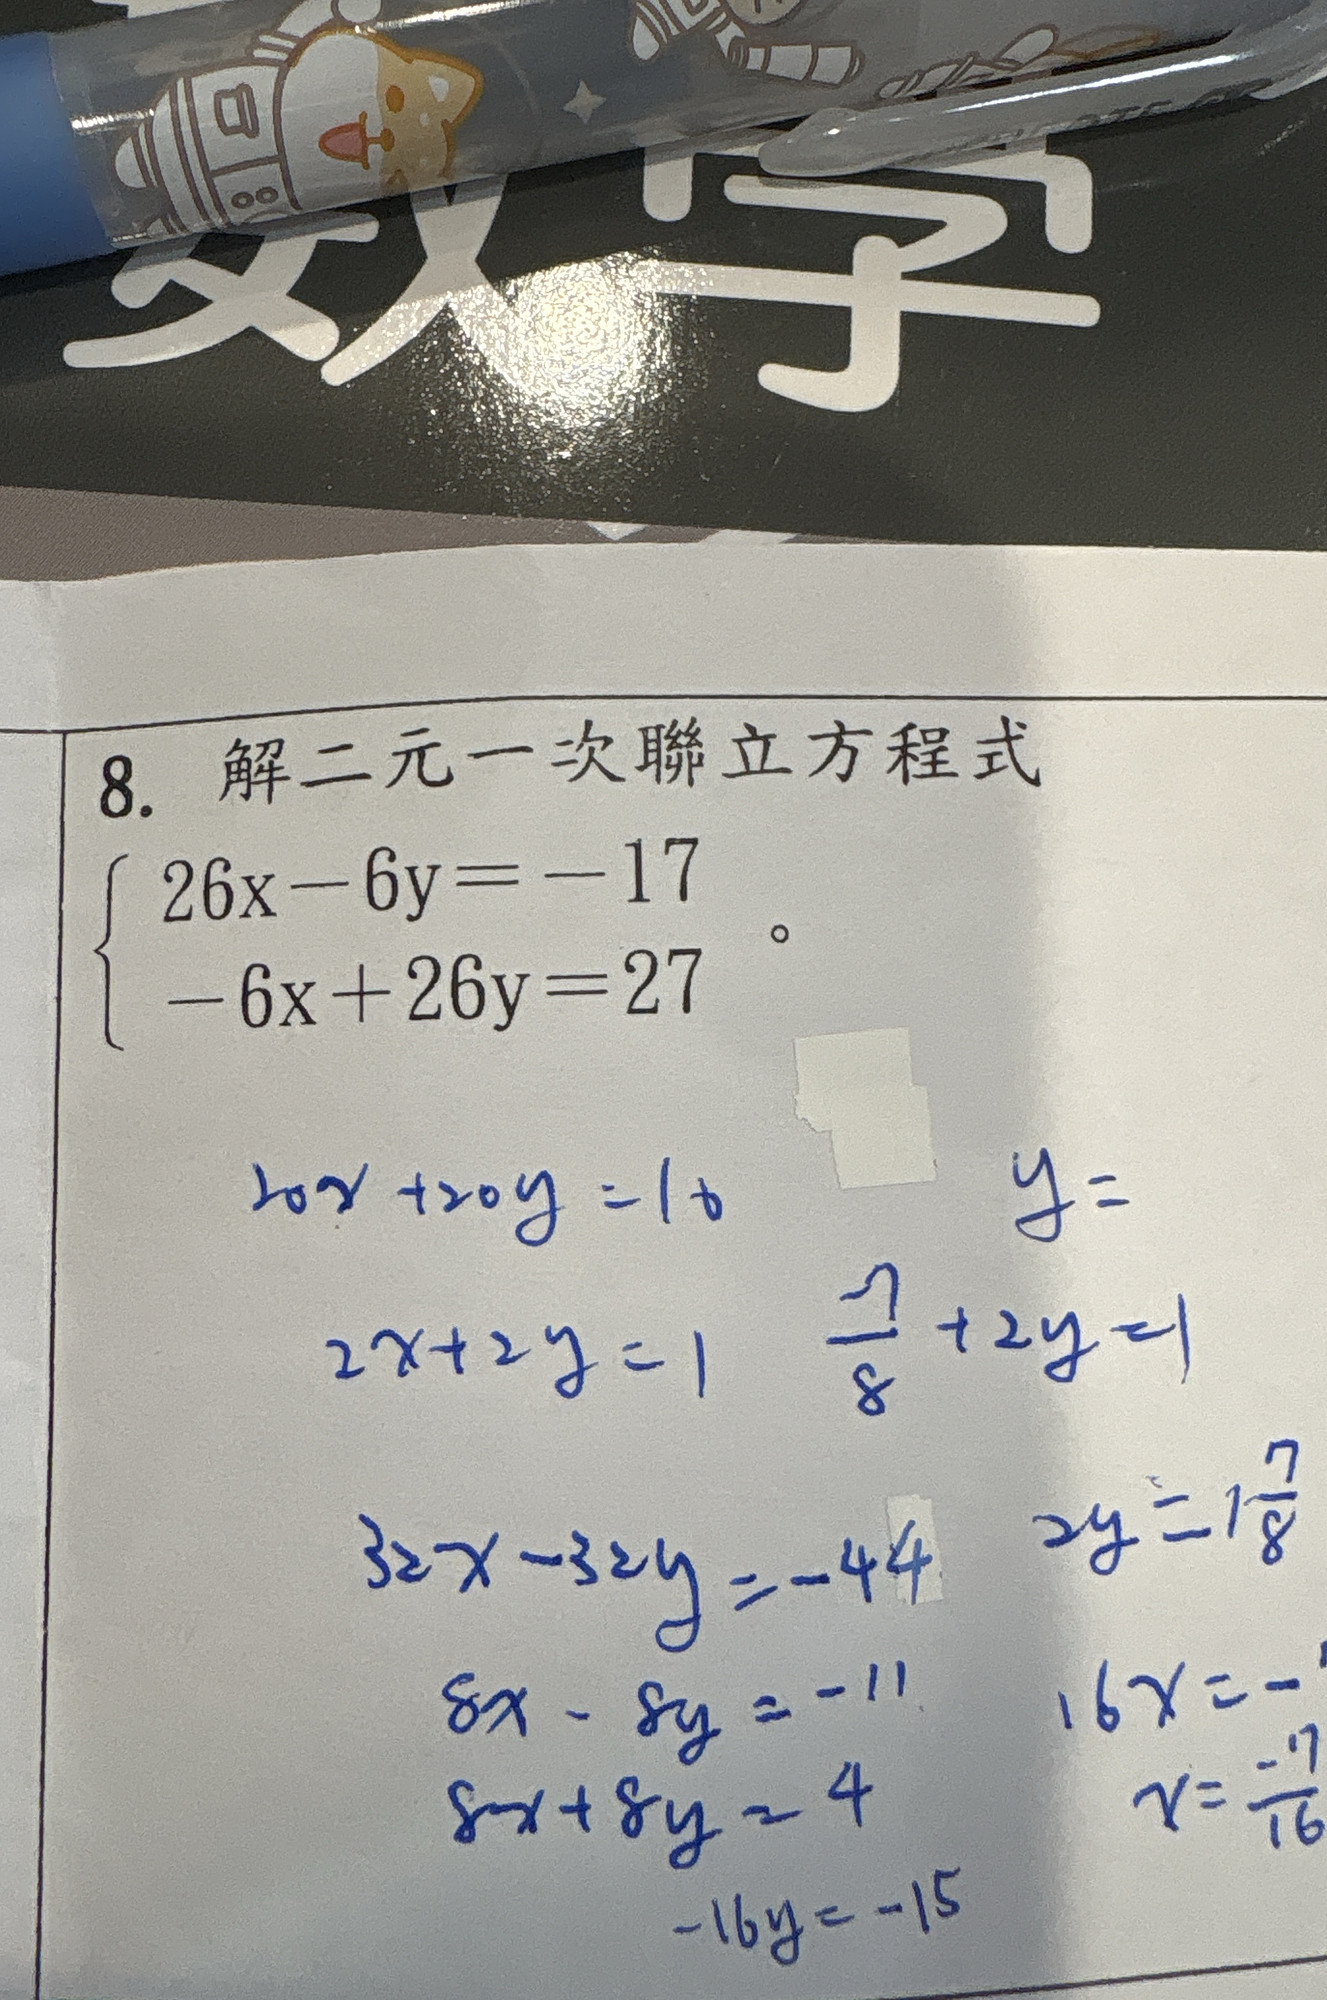 數學
8. 解二元一次聯立方程式
26x－6y＝－17
－6x＋26y＝27 。
20x+20y=10
y=
2x+2y=1
-7/8+2y=1
32x-32y=-44
2y=1 7/8
8x-8y=-11
16x=-
8x+8y=4
x=-7/16
-16y=-15